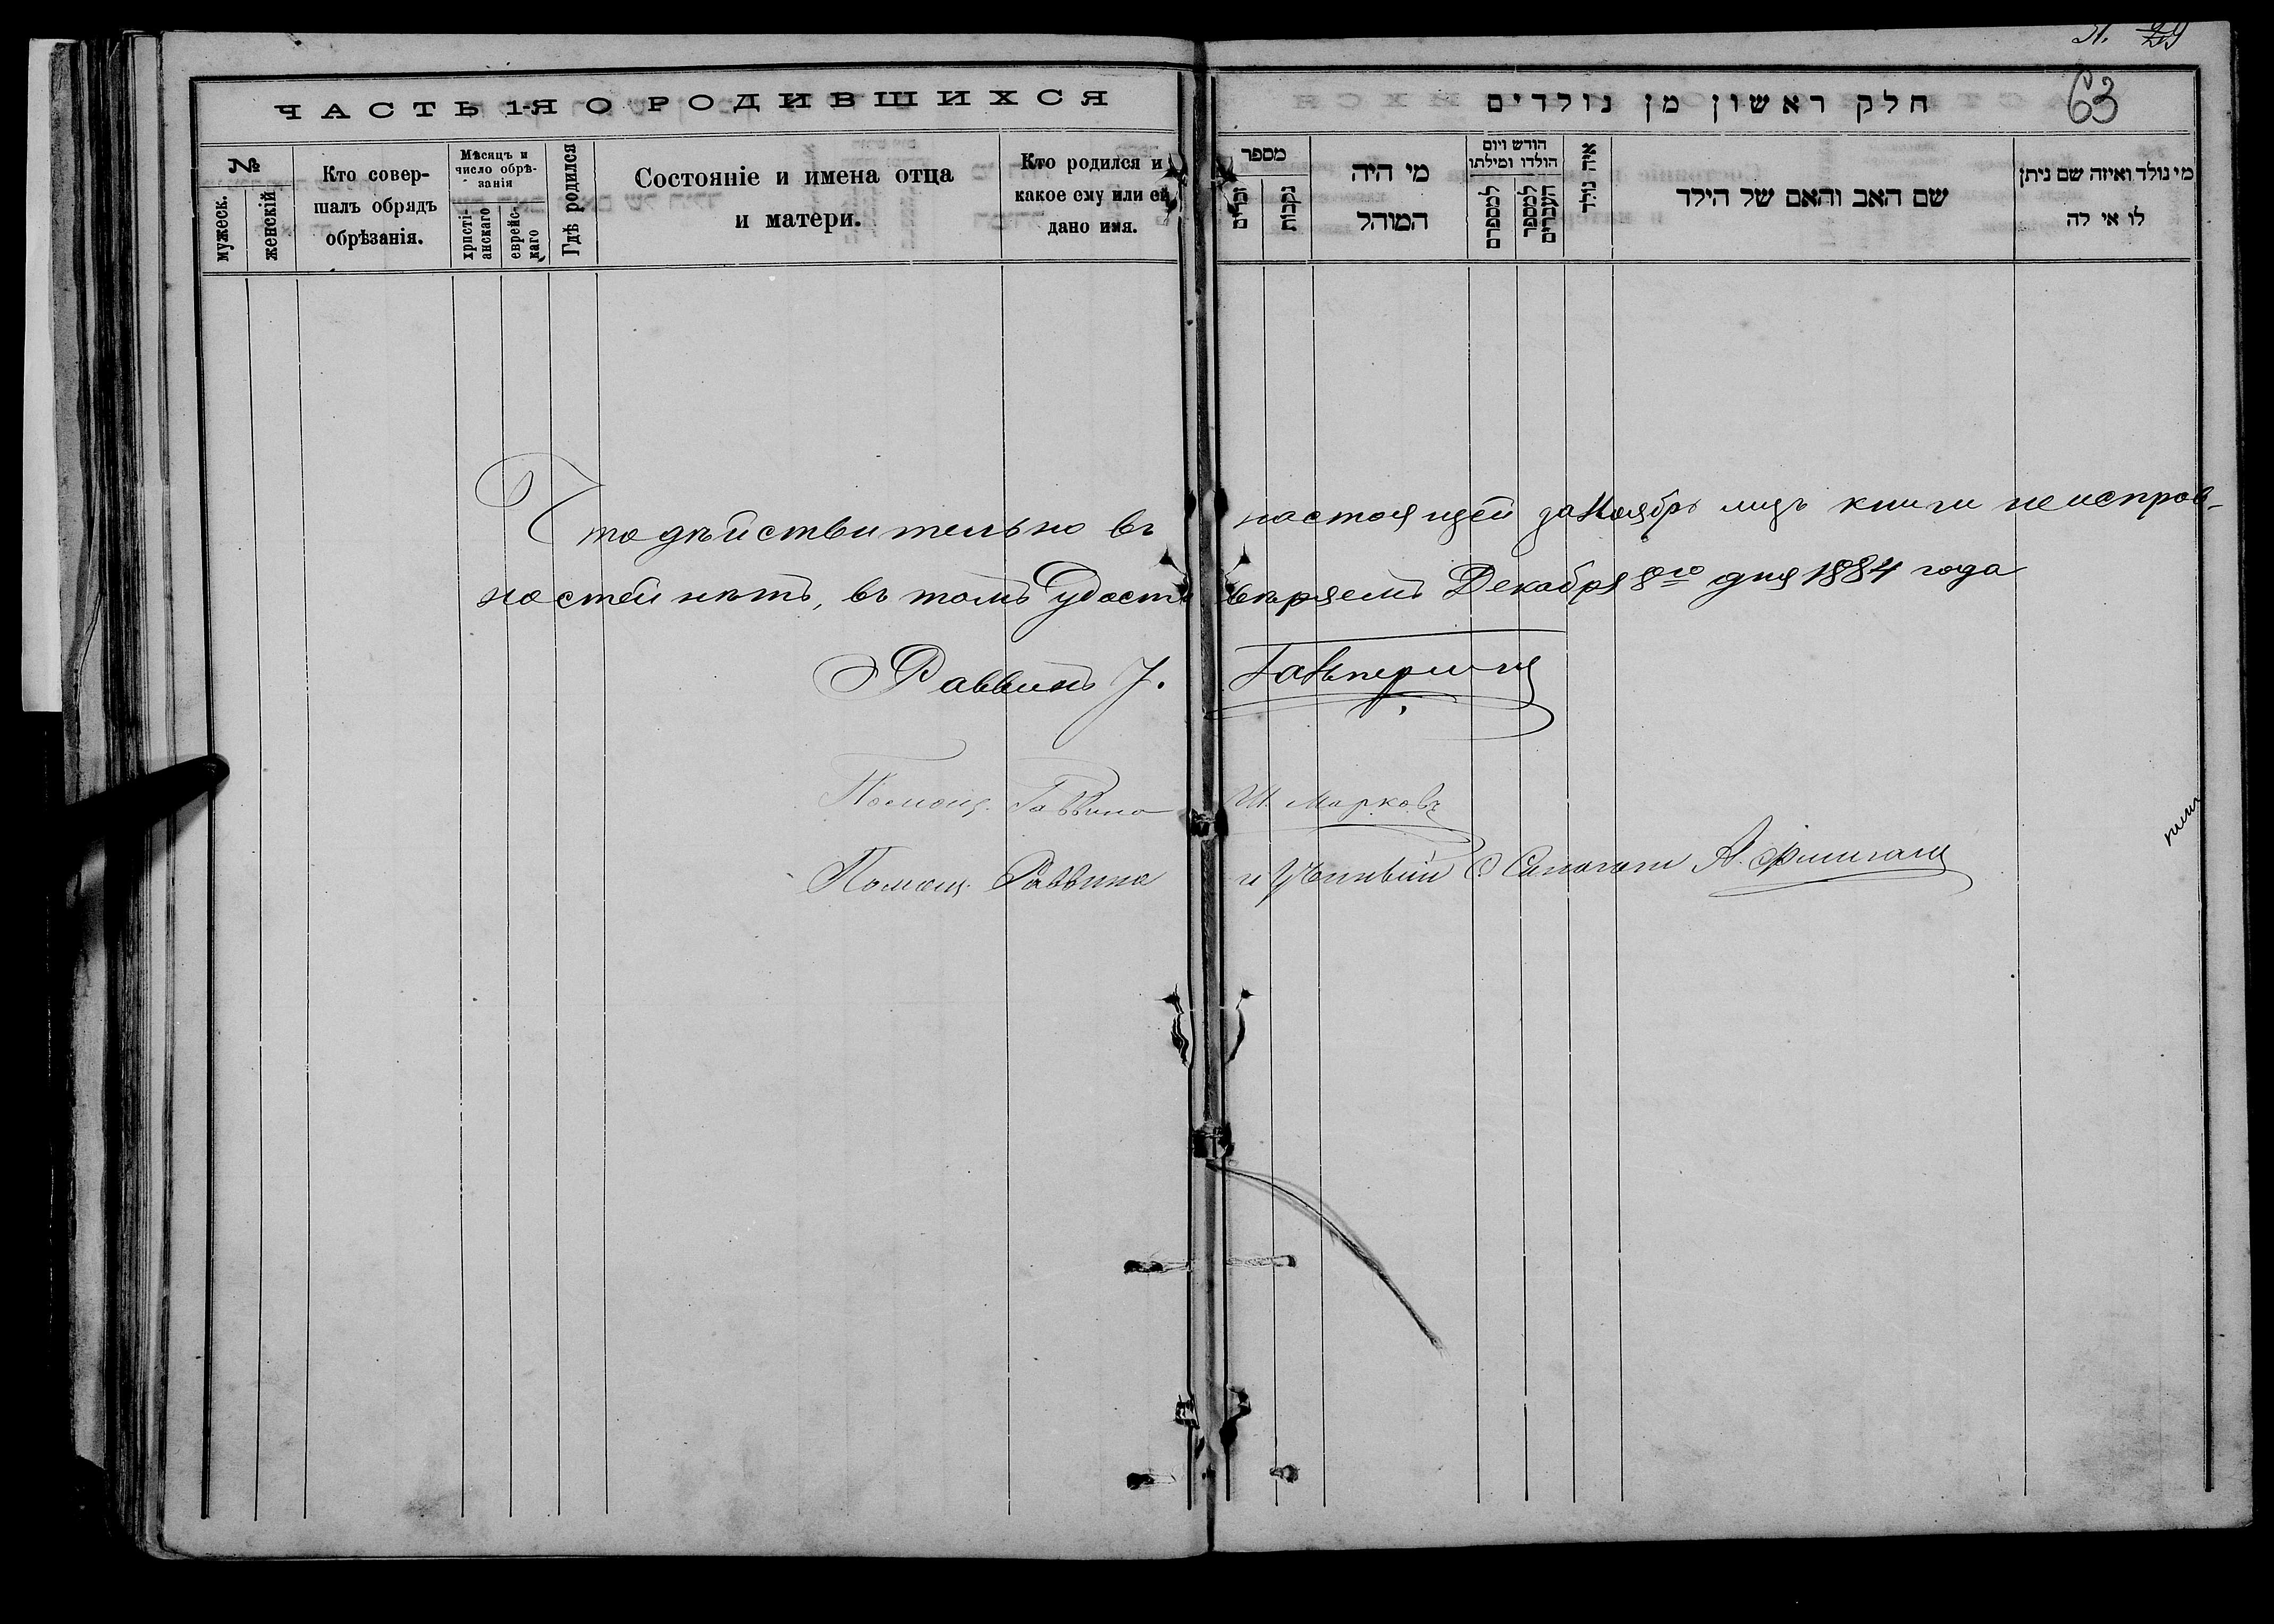 51. 29
63
ЧАСТЬ 1-Я О РОДИВШИХСЯ
№
мужеск.
женскій
Кто совер-
шалъ обрядъ
обрѣзанія.
Мѣсяцъ и
число обрѣ-
занія
христі-
анскаго
еврейс-
каго
Гдѣ родился
Состояніе и имена отца
и матери.
Кто родился и
какое ему или ей
дано имя.
חלק ראשון מן נולדים
מספר
זכרים
נקבות
מי היה
המוהל
חודש ויום
הולדו ומילתו
למספרם
למספר
העברים
איה נולד
שם האב והאם של הילד
מי נולד ואיזה שם ניתן
לו או לה
Что дѣйствительно въ настоящей за Ноябрь мцъ книги неисправ-
ностей нѣтъ, въ томъ удостовѣряемъ Декабря 8го дня 1884 года
Раввинъ Г. Гальперинъ
Помощ. Раввина Ш. Марковъ
Помощ. Раввина и